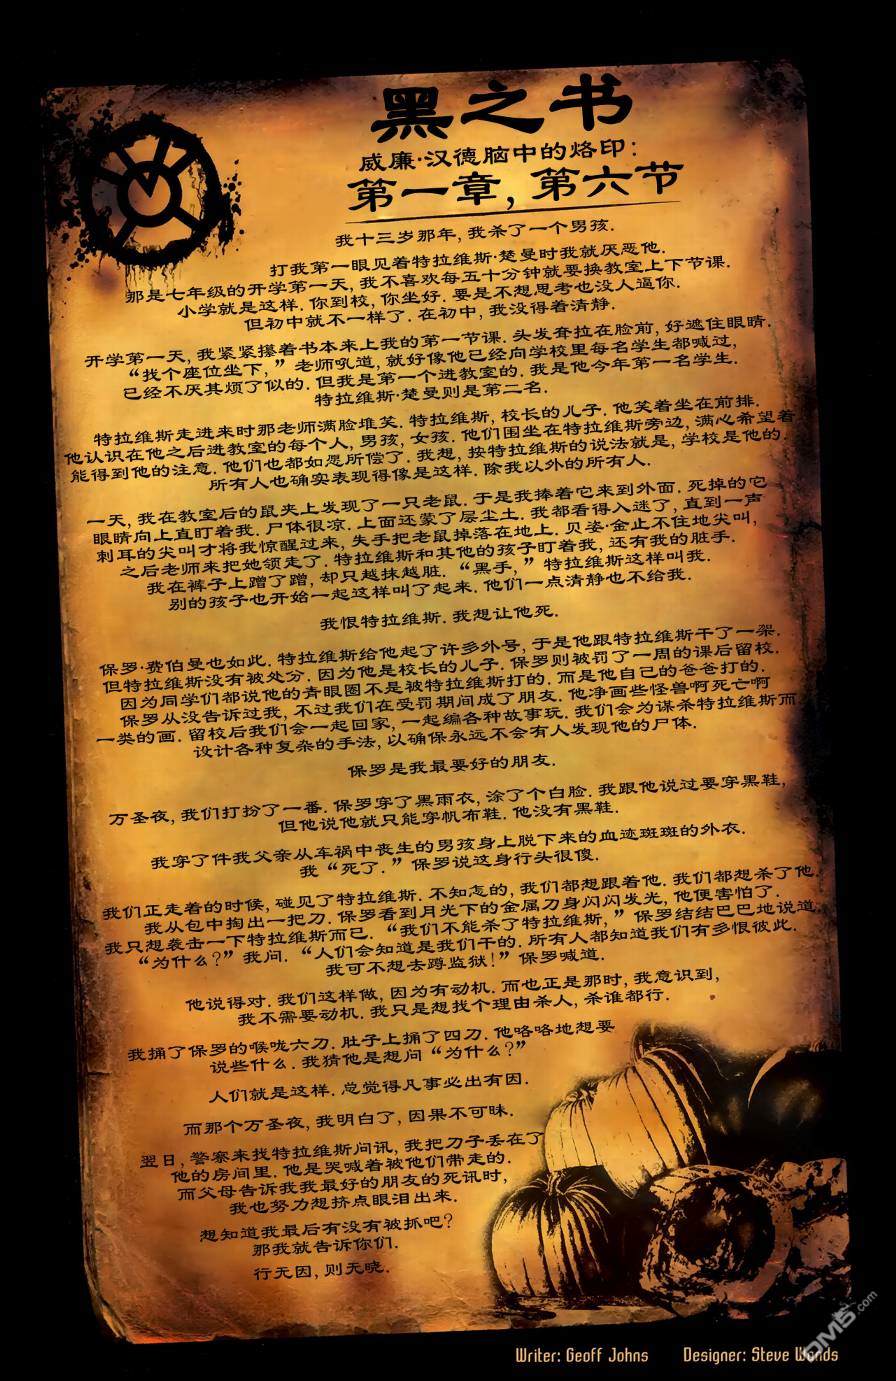 黑之书
威廉·汉德脑中的烙印：
第一章，第六节
我十三岁那年，我杀了一个男孩.
打我第一眼见着特拉维斯·楚曼时我就厌恶他.
那是七年级的开学第一天，我不喜欢每五十分钟就要换教室上下节课.
小学就是这样. 你到校，你坐好. 要是不想思考也没人逼你.
但初中就不一样了. 在初中，我没得着清静.
开学第一天，我紧紧攥着书本来上我的第一节课. 头发耷拉在脸前，好遮住眼睛.
“找个座位坐下，”老师吼道，就好像他已经向学校里每名学生都喊过，
已经不厌其烦了似的. 但我是第一个进教室的. 我是他今年第一名学生.
特拉维斯·楚曼则是第二名.
特拉维斯走进来时那老师满脸堆笑. 特拉维斯，校长的儿子. 他笑着坐在前排.
他认识在他之后进教室的每个人，男孩，女孩. 他们围坐在特拉维斯旁边，满心希望着
能得到他的注意. 他们也都如愿所偿了. 我想，按特拉维斯的说法就是，学校是他的.
所有人也确实表现得像是这样. 除我以外的所有人.
一天，我在教室后的鼠夹上发现了一只老鼠. 于是我捧着它来到外面. 死掉的它
眼睛向上直盯着我. 尸体很凉. 上面还蒙了层尘土. 我都看得入迷了，直到一声
刺耳的尖叫才将我惊醒过来，失手把老鼠掉落在地上. 贝姿·金止不住地尖叫，
之后老师来把她领走了. 特拉维斯和其他的孩子盯着我，还有我的脏手.
我在裤子上蹭了蹭，却只越抹越脏. “黑手，”特拉维斯这样叫我.
别的孩子也开始一起这样叫了起来. 他们一点清静也不给我.
我恨特拉维斯. 我想让他死.
保罗·费伯曼也如此. 特拉维斯给他起了许多外号，于是他跟特拉维斯干了一架.
但特拉维斯没有被处分. 因为他是校长的儿子. 保罗则被罚了一周的课后留校.
因为同学们都说他的青眼圈不是被特拉维斯打的. 而是他自己的爸爸打的.
保罗从没告诉过我，不过我们在受罚期间成了朋友. 他净画些怪兽啊死亡啊
一类的画. 留校后我们会一起回家，一起编各种故事玩. 我们会为谋杀特拉维斯而
设计各种复杂的手法，以确保永远不会有人发现他的尸体.
保罗是我最要好的朋友.
万圣夜，我们打扮了一番. 保罗穿了黑雨衣，涂了个白脸. 我跟他说过要穿黑鞋，
但他说他就只能穿帆布鞋. 他没有黑鞋.
我穿了件我父亲从车祸中丧生的男孩身上脱下来的血迹斑斑的外衣.
我“死了.”保罗说这身行头很傻.
我们正走着的时候，碰见了特拉维斯. 不知怎的，我们都想跟着他. 我们都想杀了他.
我从包中掏出一把刀. 保罗看到月光下的金属刀身闪闪发光，他便害怕了.
我只想袭击一下特拉维斯而已. “我们不能杀了特拉维斯，”保罗结结巴巴地说道.
“为什么?”我问. “人们会知道是我们干的. 所有人都知道我们有多恨彼此.
我可不想去蹲监狱!”保罗喊道.
他说得对. 我们这样做，因为有动机. 而也正是那时，我意识到，
我不需要动机. 我只是想找个理由杀人，杀谁都行.
我捅了保罗的喉咙六刀. 肚子上捅了四刀. 他咯咯地想要
说些什么. 我猜他是想问“为什么?”
人们就是这样. 总觉得凡事必出有因.
而那个万圣夜，我明白了，因果不可昧.
翌日，警察来找特拉维斯问讯，我把刀子丢在了
他的房间里. 他是哭喊着被他们带走的.
而父母告诉我我最好的朋友的死讯时，
我也努力想挤点眼泪出来.
想知道我最后有没有被抓吧?
那我就告诉你们.
行无因，则无晓.
Writer: Geoff Johns Designer: Steve Wands
DM5.com